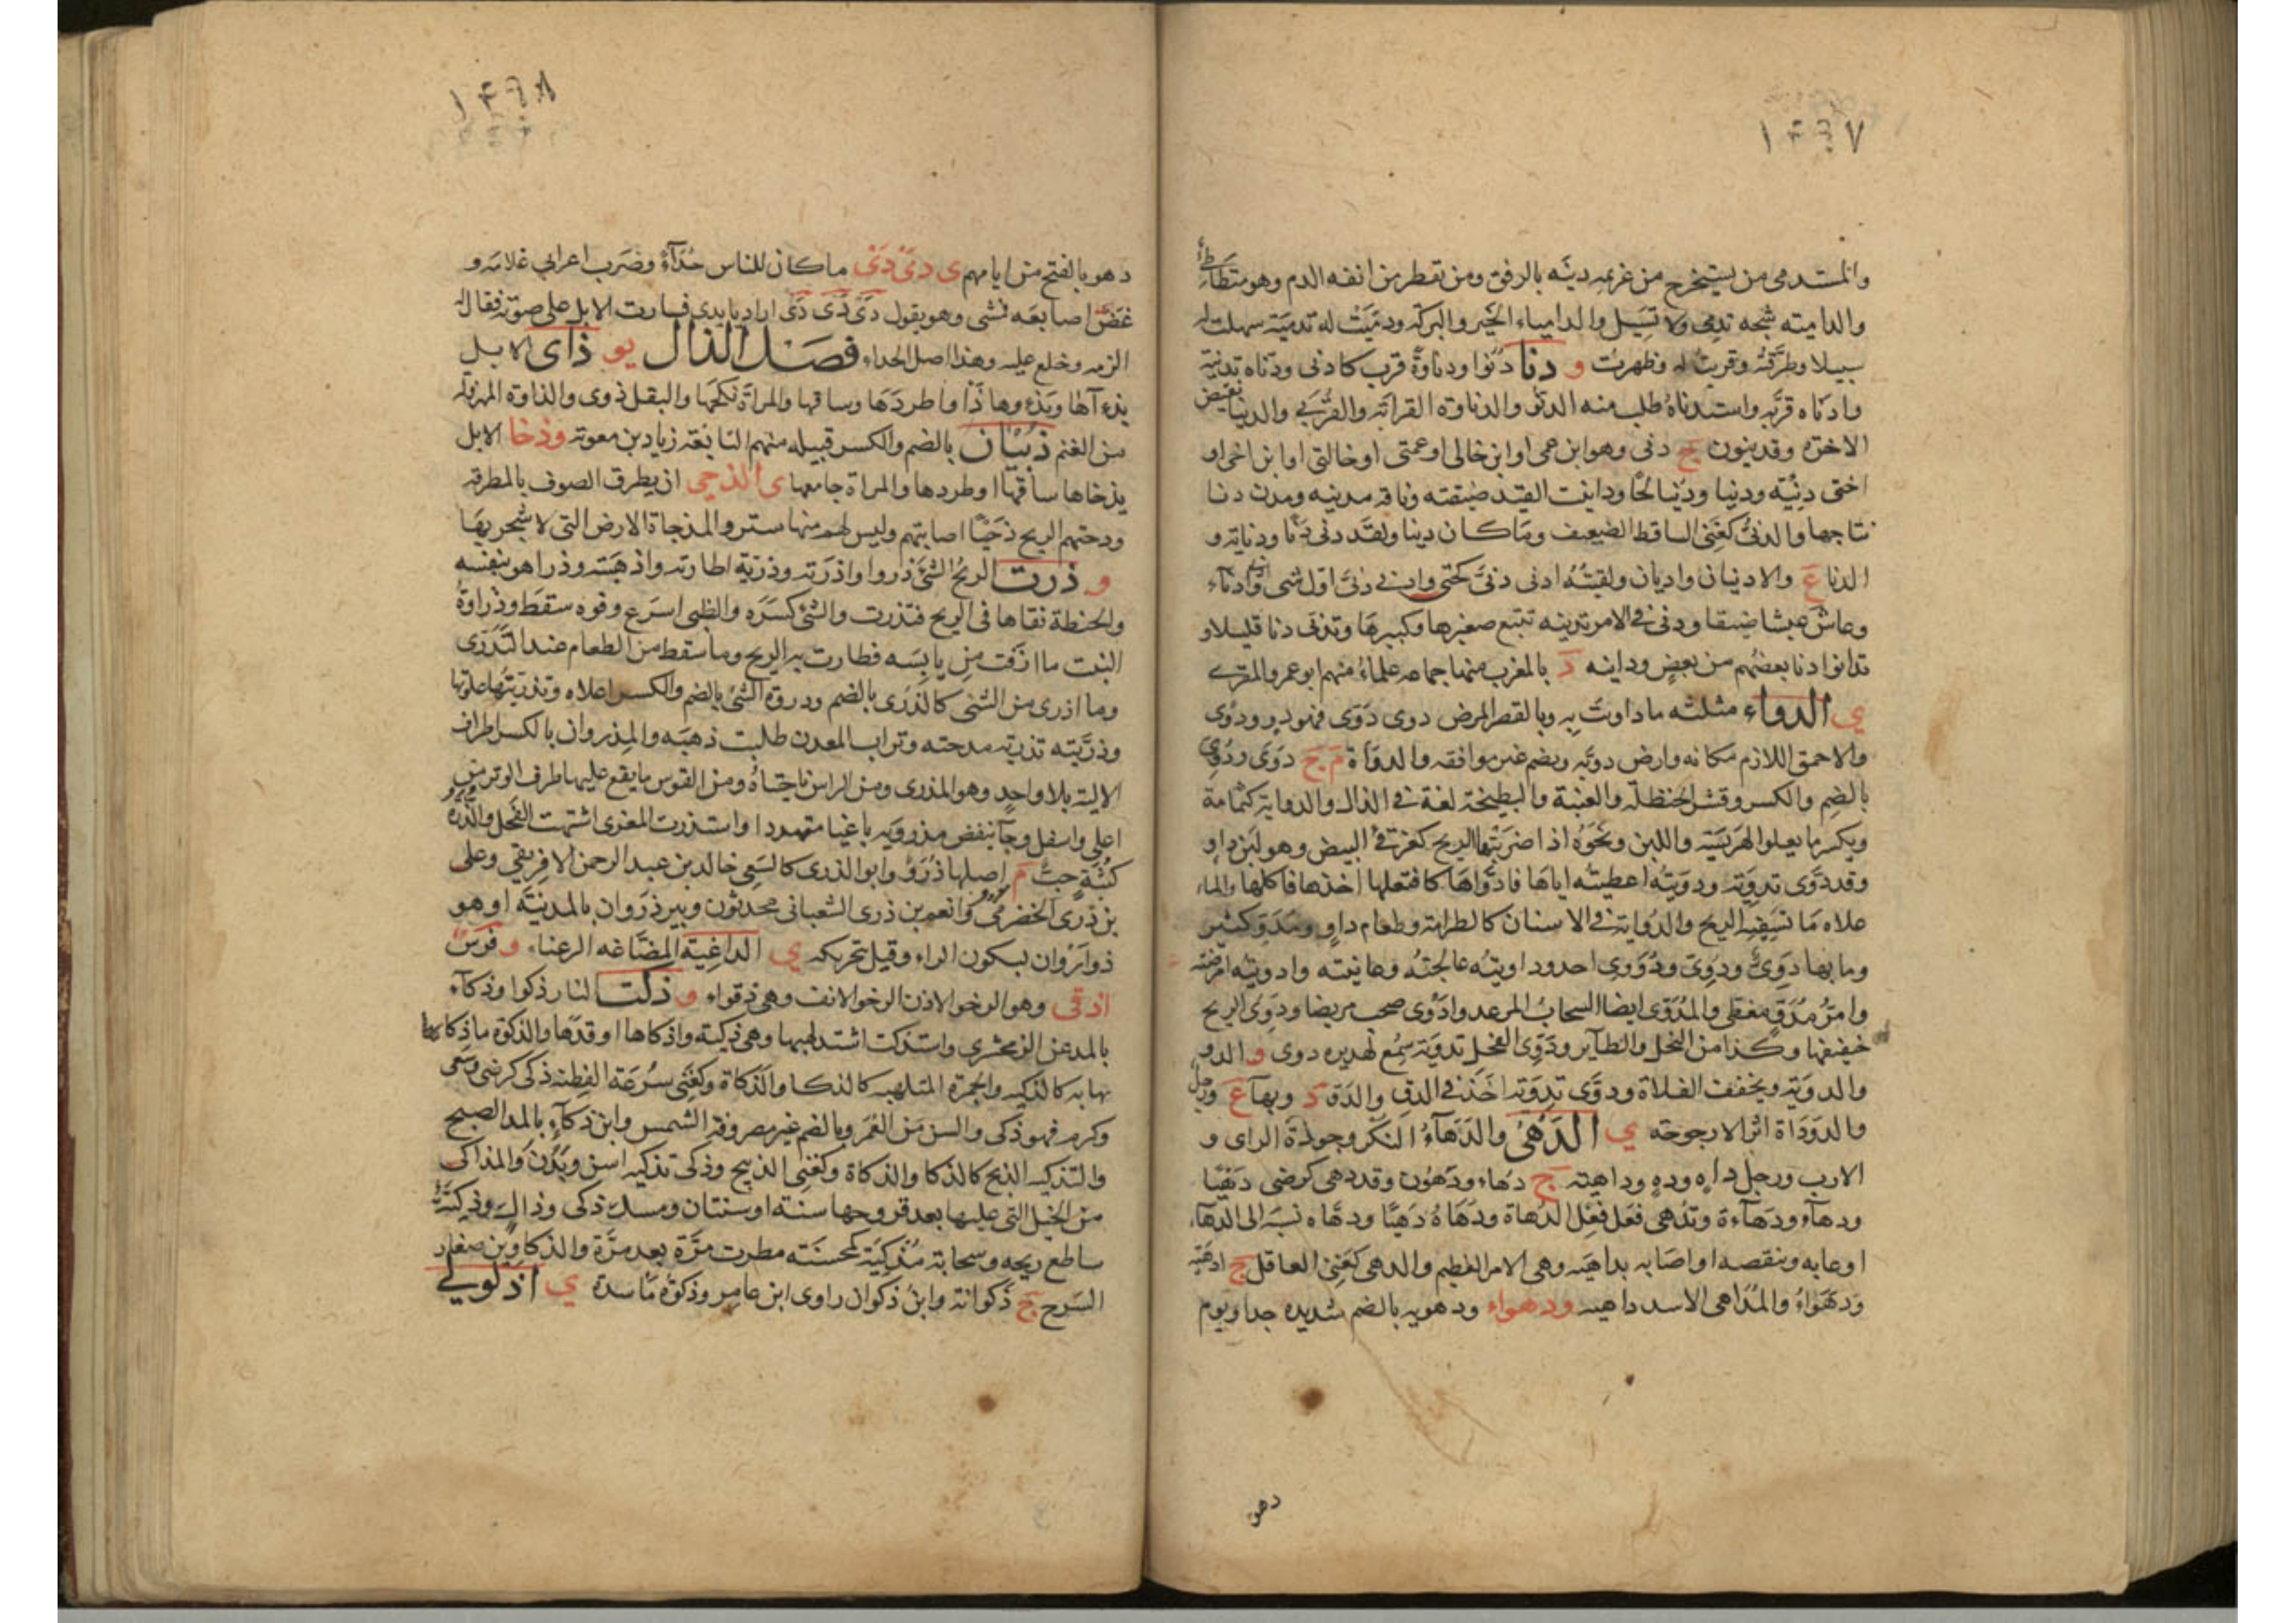 ١٤٩٧
والمستدمى من يستخرج من غريمه دينه بالرفق ومن تقطر من انفه الدم وهو متطأطئ
والدامية شجه تدمى ولا تسيل والدامياء الخير والبركة ودميت له تدمية سهلت له
سبيلا وطرقته وقربت له وظهرت و دنا دنوا ودناوة قرب كادنى ودناه تدنية
وادناه قربه واستدناه طلب منه الدنو والدناوة القرابة والقربى والدنيا نقيض
الاخرة وقد ينون ج دنى وهو ابن عمى او ابن خالى او عمتى او خالتى او ابن اخى او
اختى دنية ودنيا ودنيا لحا ودانيت القيد ضيقته وناقه مدنيه ومدن دنا
نتاجها والدنى كغنى الساقط الضعيف وما كان دنيا ولقد دنى دنا ودناية و
الدنا ع والادنيان واديان ولقيته ادنى دنى كحتى وادنى دنى اول شى وادناء
وعاش عيشا ضيقا ودنى فى الامر تدنيه تتبع صغيرها وكبيرها وتدنى دنا قليلا و
تدانوا دنا بعضهم من بعض ودانيه د بالمغرب منها جماعه علماء منهم ابو عمر والمقرى
ي الدواء مثلثه ما داوت به وبالقصر المرض دوى دوى فهو دو ودوى
والاحمق اللازم مكانه وارض دويه ويضم غير موافقه والدواة م ج دوى ودوى
بالضم والكسر وقشر الحنظلة والعنبة والبطيخة لغة فى الذال والدواية كثمامة
ويكسر ما يعلوا الهريسة واللبن ونحوه اذا ضربتها الريح كغرقئ البيض وهو لبن داو
وقد دوى تدويه ودويته اعطيته اياها فادواها كافتعلها اخذها فاكلها والماء
علاه ما تسفيه الريح والدواية فى الاسنان كالطرامة وطعام داو ومدو كثير
وما بها دوى ودوى ودؤوى احد وداويته عالجته وعانيته وادويته امرضته
وامر مدو مغطى والمدوى ايضا السحاب المرعد وادوى صحب مريضا ودوى الريح
حفيفها وكذا من النحل والطاير ودوى الفحل تدوية سمع لهديره دوى و الدو
والدوية ويخفف الفلاة ودوى تدويه اخذ فى الدو والدوة د وبها ع ورجل
والدوداة اثر الارجوحة ي الدهى والدهاء النكر وجودة الراى و
الارب ورجل داه وده وداهية ج دهاء ودهون وقد دهى كرضى دهيا
ودهاء ودهاءة وتدهى فعل فعل الدهاة ودهاه دهيا ودهاه نسبه الى الدهاء
او عابه وتنقصه او اصابه بداهية وهى الامر العظيم والدهى كغنى العاقل ج ادهية
ودهواء والمداهى الاسد داهيه ودهواء ودهويه بالضم شديده جدا ويوم
دهو
١٤٩٨
دهو بالفتح من ايامهم ى دى دى ما كان للناس حداء وضرب اعرابى غلامه و
عض اصابعه فمشى وهو يقول دى دى دى اراد يايدى فسارت الابل على صوته فقال له
الزمه وخلع عليه وهذا اصل الحداء فصل الذال يو ذاى الابل
يذءاها ويذءوها ذأوا طردها وساقها والمراة نكحها والبقل ذوى والذاوة المهزولة
من الغنم ذبيان بالضم والكسر قبيله منهم النابغة زياد بن معوية وذخا الابل
يذخاها ساقها او طردها والمراة جامعها ى الذحى ان يطرق الصوف بالمطرقه
ودحتهم الريح ذحيا اصابتهم وليس لهم منها ستر والمذحاة الارض التى لا شجر بها
و ذرت الريح الشئ ذروا واذرته وذرته اطارته واذهبته وذرا هو بنفسه
والحنطة نقاها فى الريح فتذرت والشئ كسره والظبى اسرع وفوه سقط وذراوة
النبت ما ازفت من يابسه فطارت به الريح وما سقط من الطعام عند التذرى
وما اذرى من الشئ كالذرى بالضم وذروة الشئ بالضم والكسر اعلاه وتذريتها علوتها
وذريته تذرية مدحته وتراب المعدن طلبت ذهبه والمذروان بالكسر اطراف
الالية بلا واحد وهو المذرى ومن الراس ناحيتاه ومن القوس ما يقع عليهما طرف الوتر من
اعلى واسفل وجآ ينفض مذرويه باغيا متهددا واستذرت المعزى اشتهت الفحل والذرة
كثبة حب م اصلها ذرو وابو الذرى كالسمى خالد بن عبد الرحمن الافريقى وعلى
بن ذرى الحضرمى وانعم بن ذرى الشعبانى محدثون وبير ذروان بالمدينة او هو
ذو اروان بسكون الراء وقيل بتحريكه ي الداغية المضاغه الرعناء و فرس
اذقى وهو الرخو الاذن الرخو الانف وهى ذقواء و ذكت النار ذكوا وذكاء
بالمد عن الزمخشرى واستذكت اشتد لهبها وهى ذكية واذكاها اوقدها والذكوة ما ذكاها
بها به كالذكيه والجمرة الملتهبه كالذكا والذكاة وكغنى سرعة الفطنة ذكى كرضى وسعى
وكرم فهو ذكى والسن من العمر وبالضم غير مصروفة الشمس وابن ذكاء بالمد الصبح
والتذكيه الذبح كالذكا والذكاة وكغنى الذبيح وذكى تذكيه اسن وبدن والمذاكى
من الخيل التى عليها بعد قروحها سنة او سنتان ومسك ذكى وذاك وذكية
ساطع ريحه وسحابة مذكية كمحسنة مطرت مرة بعد مرة والذكاوين صغار
السرح ج ذكوانة وابن ذكوان راوى ابن عامر وذكوة ماسدة ي اذلولى